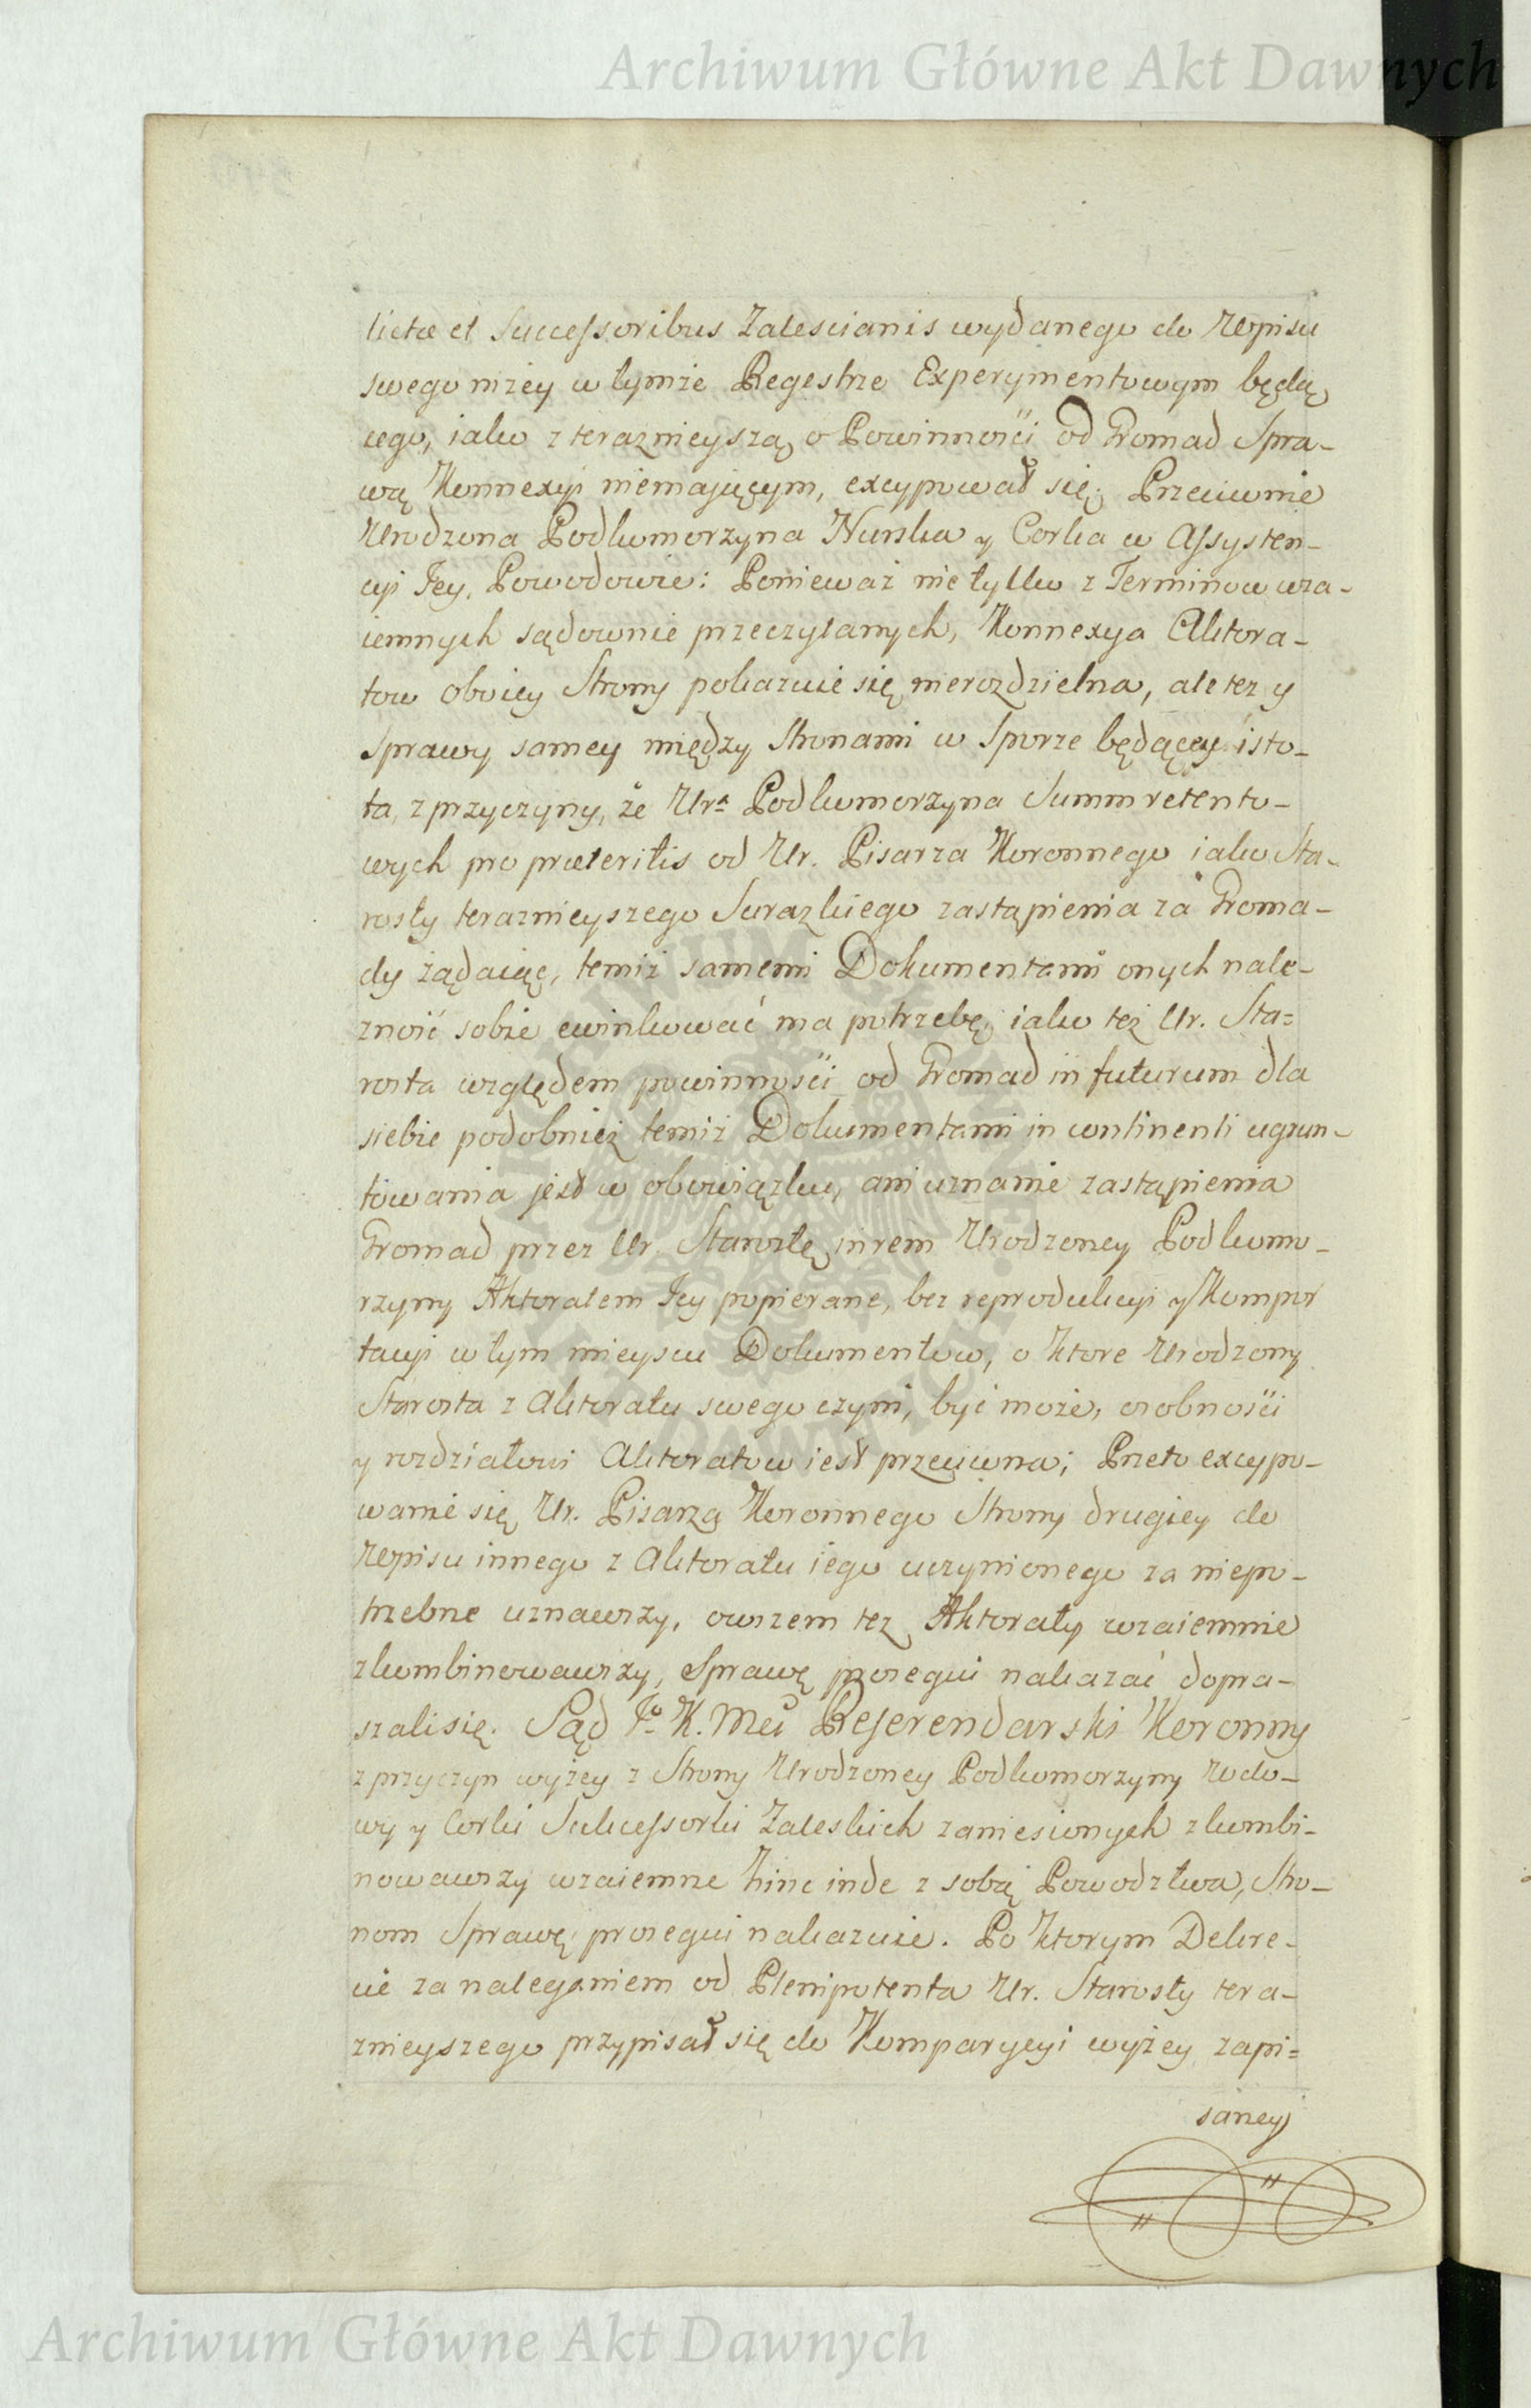 Archiwum Główne Akt Dawnych
lictæ et Successoribus Zalescianis wydanego do Wpisu
swego niżey w tymże Regestrze Experymentowym będą
cego, iako z teraznieyszą o Powinności od Gromad Spra-
wą Konnexyi niemaiącym, excypował się; Przeciwnie
Urodzona Podkomorzyna Nurska y Corka w Assysten-
cyi Jey, Powodowie: Ponieważ nie tylko z Terminow wza-
iemnych sądownie przeczytanych, Konnexya Aktora-
tow oboiey Strony pokazuie się nierozdzielna, ale tez y
Sprawy samey między Stronami w Sporze będącey isto-
ta, z przyczyny, że Urª Podkomorzyna Summ retento-
wych pro præteritis od Ur. Pisarza Koronnego iako Sta-
rosty terazniejszego Surazkiego zastąpienia za Groma-
dy żądaiąc, temiż samemi Dokumentami onych nale-
zność sobie ewinkować ma potrzebę, iako też Ur. Sta=
rosta względem powinności od Gromad in futurum dla
siebie podobnież temiż Dokumentami in continenti ugrun-
towania jest w obowiązku, ani uznanie zastąpienia
Gromad przez Ur. Starostę in rem Urodzoney Podkomo-
rzyny Aktoratem Jey popierane, bez reprodukcyi y Kompor
tacyi w tym mieyscu Dokumentow, o ktore Urodzony
Starosta z Aktoratu swego czyni, być może, osobności
y rozdziałowi Aktoratow iest przeciwna; Przeto excypo-
wanie się Ur. Pisarza Koronnego Strony drugiey do
Wpisu innego z Aktoratu iego uczynionego za niepo-
trzebne uznawszy, owszem tez Aktoraty wzaiemnie
zkombinowawszy, Sprawę prosequi nakazać dopra-
szali się. Sąd Jº K. Mci Referendarski Koronny
z przyczyn wyżey z Strony Urodzoney Podkomorzyny Wdo-
wy y Corki Sukcessorki Zaleskich zaniesionych zkombi-
nowawszy wzaiemne hinc inde z sobą Powodztwa, Stro-
nom Sprawę prosequi nakazuie. Po ktorym Dekre-
cie za naleganiem od Plenipotenta Ur. Starosty tera-
znieyszego przypisał się do Komparycyi wyżey zapi=
saney
Archiwum Główne Akt Dawnych